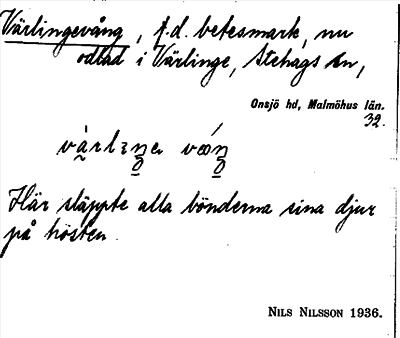 Värlingevång, f.d. betesmark, nu
odlad i Värlinge, Stehags sn,
Onsjö hd, Malmöhus län.
32.
Här släppte alla bönderna sina djur
på hösten.
NILS NILSSON 1936.